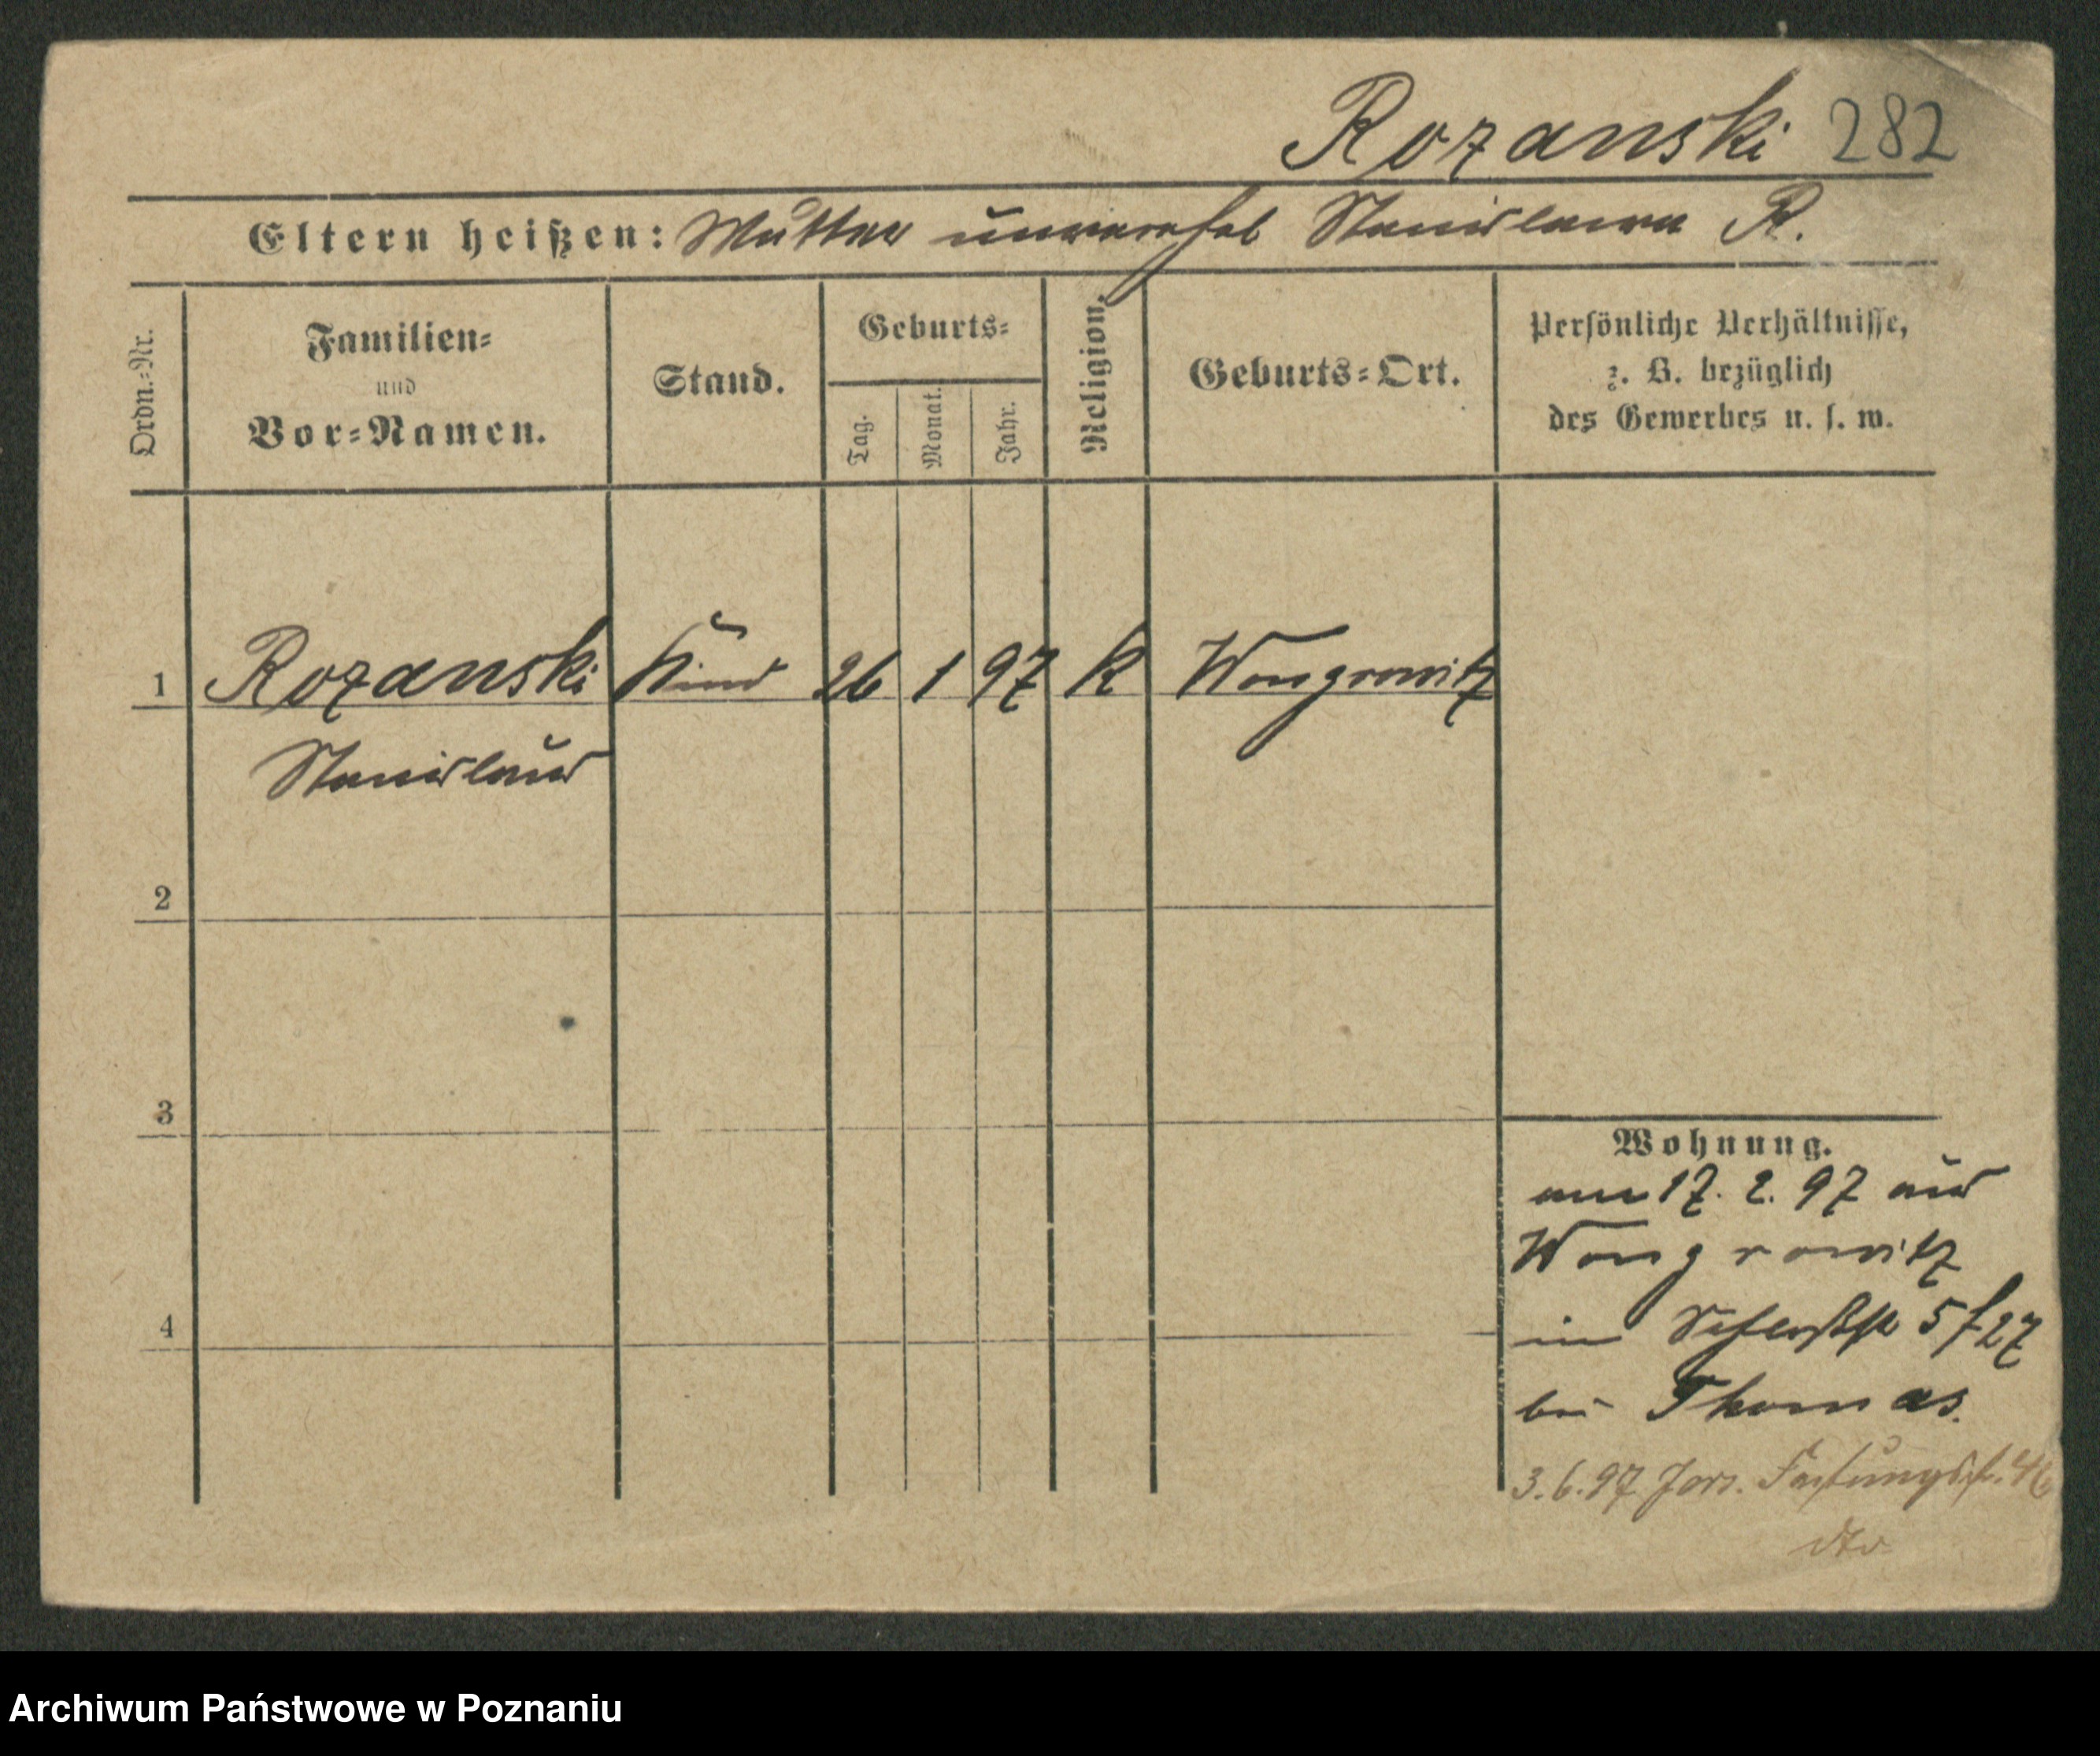 Rozanski 282
Eltern heißen: Mutter unverehel Stanislawa R.
Ordn.-Nr.
Familien-
und
Vor-Namen.
Stand.
Geburts-
Tag.
Monat.
Jahr.
Religion.
Geburts-Ort.
Persönliche Verhältnisse,
z. B. bezüglich
des Gewerbes u. s. w.
1 Rozanski Kind 26 1 97 K Wongrowitz
Stanislaus
2
3
4
Wohnung.
am 17. 2. 97 aus
Wongrowitz
in 5/27
bei Thomas.
3.6.97 Jers.
Archiwum Państwowe w Poznaniu